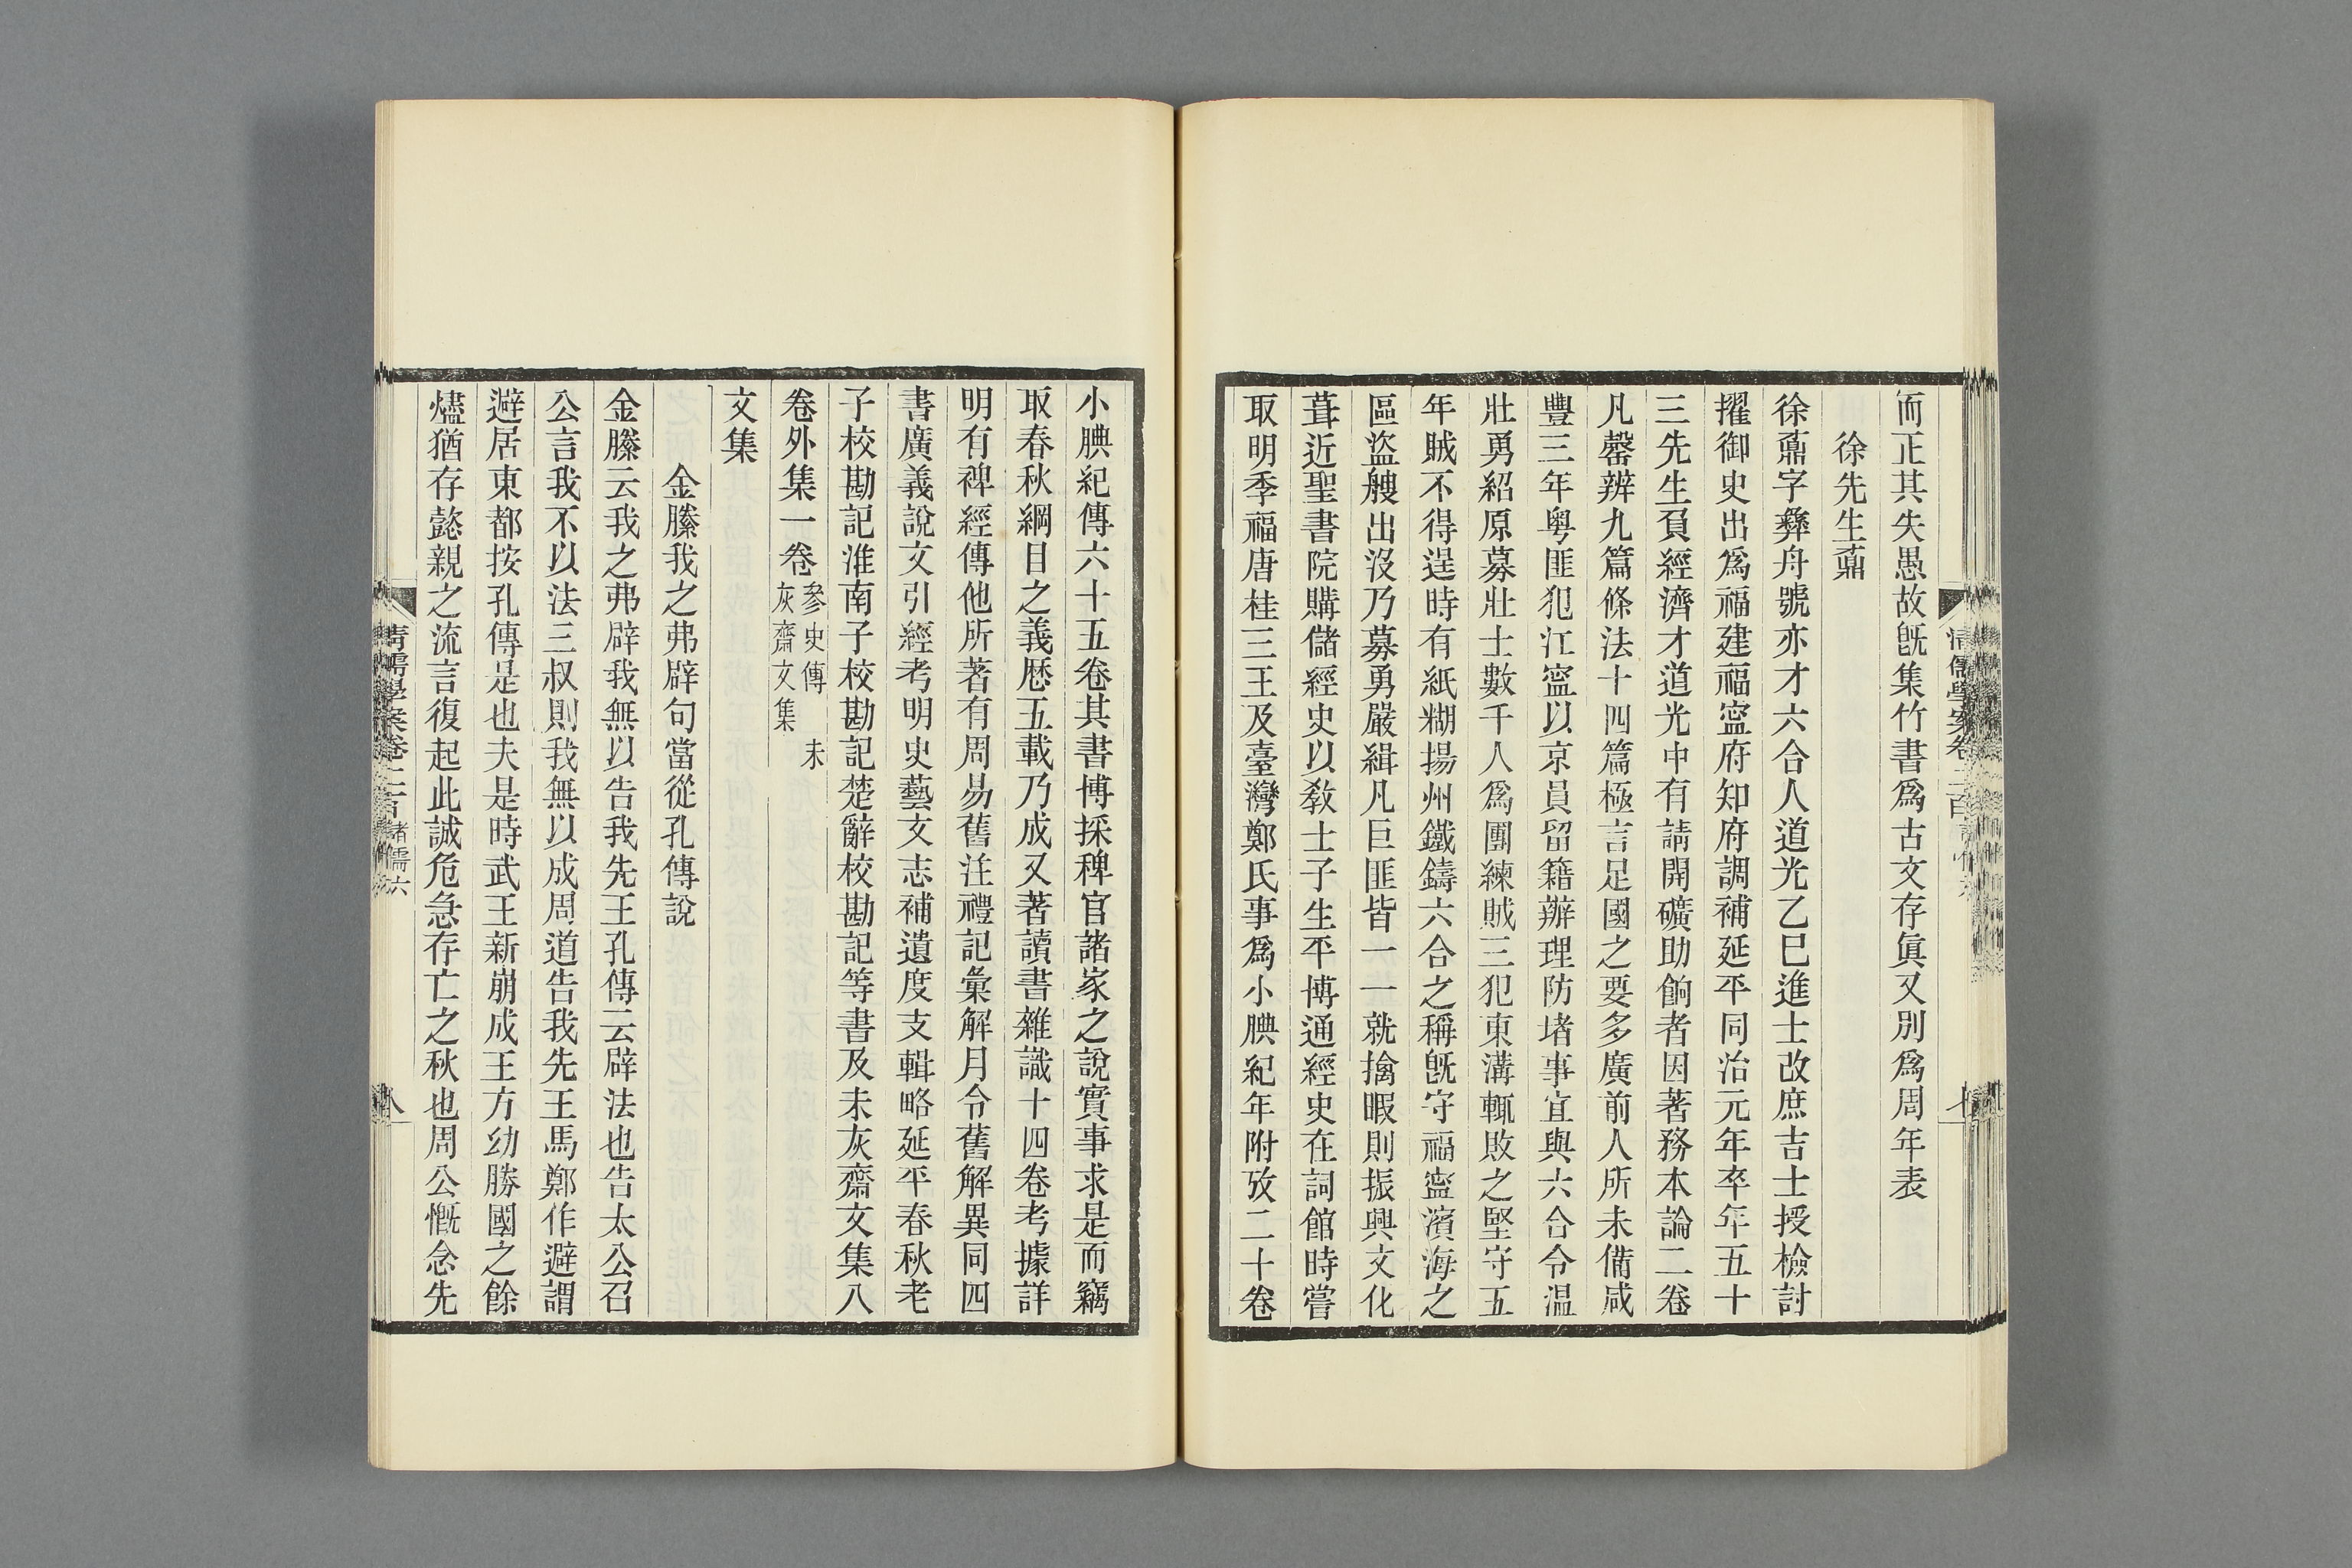 而正其失愚故旣集竹書爲古文存眞又別爲周年表
徐先生鼒
徐鼒字彝舟號亦才六合人道光乙巳進士改庶吉士授檢討
擢御史出爲福建福寍府知府調補延平同治元年卒年五十
三先生負經濟才道光中有請開礦助餉者因著務本論二卷
凡罄辨九篇條法十四篇極言足國之要多廣前人所未備咸
豐三年粵匪犯江寍以京員留籍辦理防堵事宜與六合令温
壯勇紹原募壯士數千人爲團練賊三犯東溝輒敗之堅守五
年賊不得逞時有紙糊揚州鐵鑄六合之稱旣守福寍濱海之
區盜艘出沒乃募勇嚴緝凡巨匪皆一一就擒暇則振興文化
葺近聖書院購儲經史以敎士子生平博通經史在詞館時嘗
取明季福唐桂三王及臺灣鄭氏事爲小腆紀年附攷二十卷
清儒學案卷二百
七
小腆紀傳六十五卷其書博採稗官諸家之說實事求是而竊
取春秋綱目之義歴五載乃成又著讀書雜識十四卷考據詳
明有裨經傳他所著有周易舊注禮記彙解月令舊解異同四
書廣義說文引經考明史藝文志補遺度支輯略延平春秋老
子校勘記淮南子校勘記楚辭校勘記等書及未灰齋文集八
卷外集一卷參史傳 未
灰齋文集
文集
金縢我之弗辟句當從孔傳說
金縢云我之弗辟我無以告我先王孔傳云辟法也告太公召
公言我不以法三叔則我無以成周道告我先王馬鄭作避謂
避居東都按孔傳是也夫是時武王新崩成王方幼勝國之餘
燼猶存懿親之流言復起此誠危急存亡之秋也周公慨念先
清儒學案卷二百 諸儒六
八